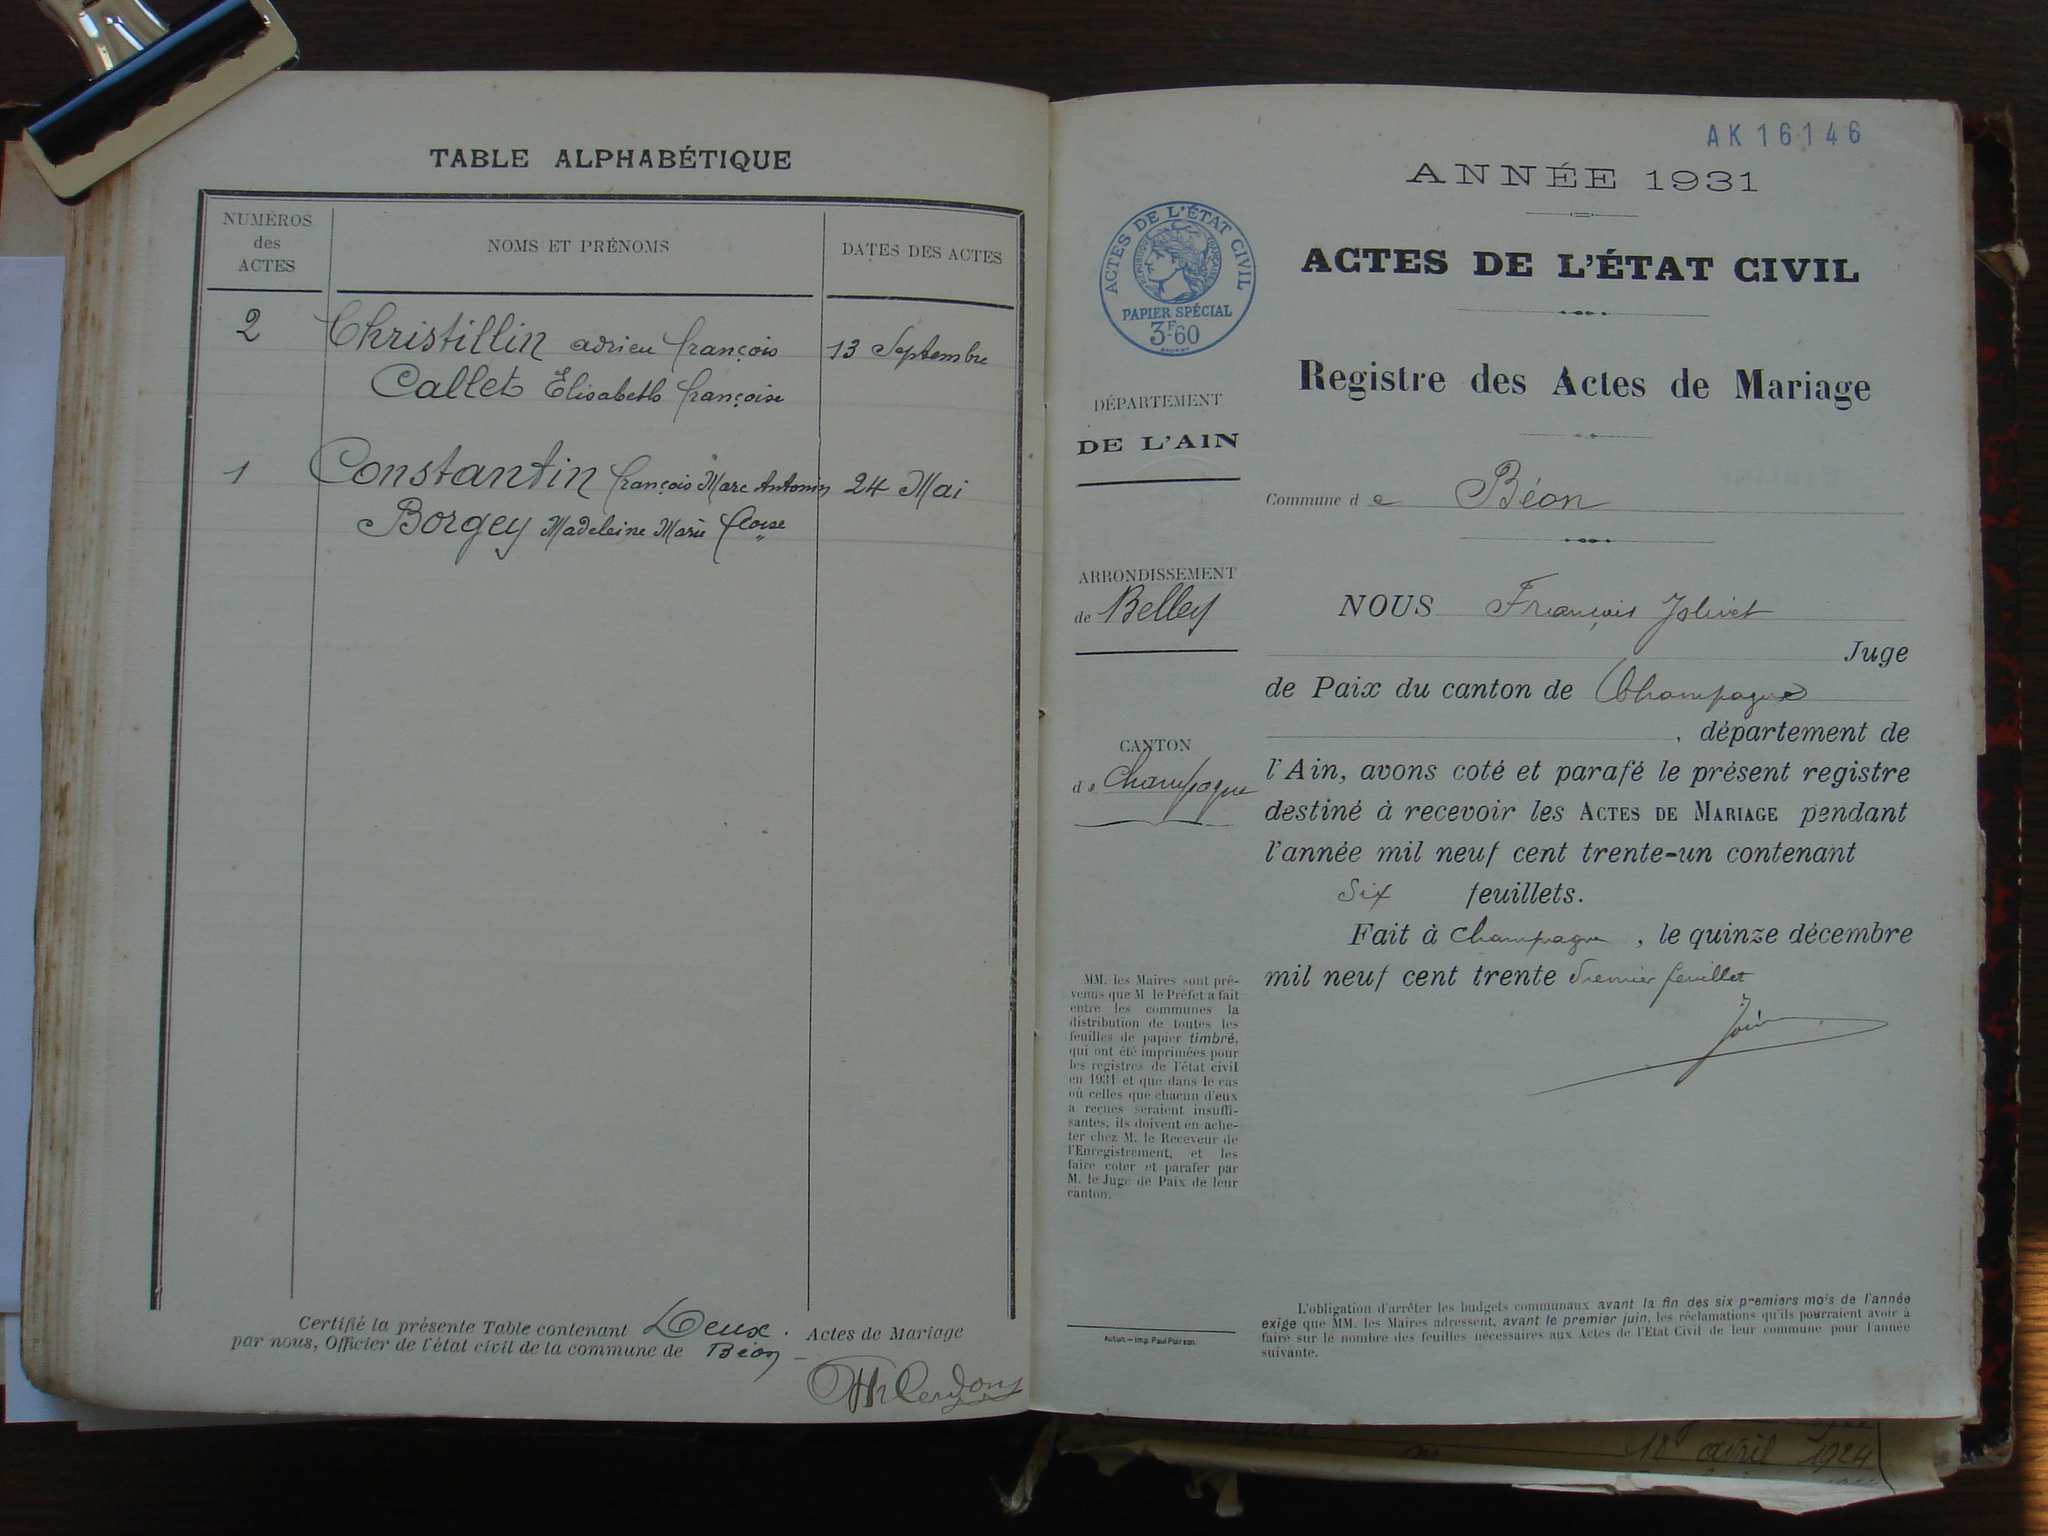 TABLE ALPHABÉTIQUE
NUMÉROS
des
ACTES
NOMS ET PRÉNOMS
DATES DES ACTES
2 Christillin adrien françois 13 Septembre
Callet Élisabeth françoise
1 Constantin françois Marc Antonin 24 Mai
Borgey Madeleine Marie
Certifié la présente Table contenant Deux. Actes de Mariage
par nous, Officier de l'état civil de la commune de Béon
AK 16146
ANNÉE 1931
ACTES DE L'ÉTAT CIVIL
RÉPUBLIQUE FRANÇAISE
PAPIER SPÉCIAL
3F60
ACTES DE L'ÉTAT CIVIL
Registre des Actes de Mariage
DÉPARTEMENT
DE L'AIN
Commune de Béon
ARRONDISSEMENT
de Belley
CANTON
de Champagne
NOUS François Jolivet
Juge
de Paix du canton de Champagne
, département de
l'Ain, avons coté et parafé le présent registre
destiné à recevoir les ACTES DE MARIAGE pendant
l'année mil neuf cent trente-un contenant
Six feuillets.
Fait à Champagne, le quinze décembre
mil neuf cent trente Premier feuillet
MM. les Maires sont pré-
venus que M le Préfet a fait
entre les communes la
distribution de toutes les
feuilles de papier timbré,
qui ont été imprimées pour
les registres de l'état civil
en 1931 et que dans le cas
où celles que chacun d'eux
a reçues seraient insuffi-
santes, ils doivent en ache-
ter chez M. le Receveur de
l'Enregistrement, et les
faire coter et parafer par
M. le Juge de Paix de leur
canton.
Autun.— Imp. Paul
L'obligation d'arrêter les budgets communaux avant la fin des six premiers mois de l'année
exige que MM. les Maires adressent, avant le premier juin, les réclamations qu'ils pourraient avoir à
faire sur le nombre des feuilles nécessaires aux Actes de l'Etat Civil de leur commune pour l'année
suivante.
18 avril 1924